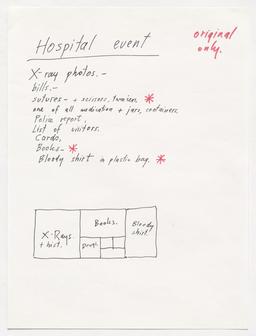 Hospital event
original
only.
X-ray photos.-
bills.-
sutures- + scissors, *
one of all medication + jars, containers.
Police report,
List of visitors.
Cards,
Books- *
Bloody shirt in plastic bag. *
X-Rays
+ hist.
Books.
Bloody
shirt